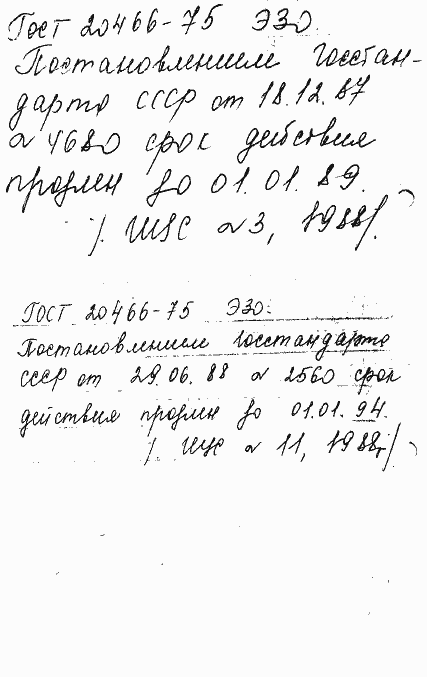 ГОСТ 20466-75 Э30.
Постановлением Госстан-
дарта СССР от 18.12.87
№ 4680 срок действия
продлен до 01.01.89.
/ ИУС № 3, 1988/.
ГОСТ 20466-75 Э30.
Постановлением Госстандарта
СССР от 29.06.88 № 2560 срок
действия продлен до 01.01.94.
/ ИУС № 11, 1988г/